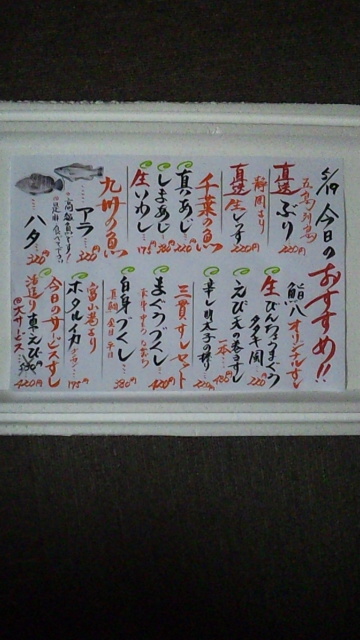 5/19 今日のおすすめ!!
五島列島
直送ぶり 220円
静岡より
直送生しらす 220円
千葉の魚
真あじ 220
しまあじ 220
生いわし 175円
九州の魚
アラ 220
高級魚です!
ハタ 220
鮨八オリジナルすし
生びんちょうまぐろ
タタキ風 220
えび天の巻ずし
一本
辛し明太子の
三貫すしセット
まぐろづくし 420円
白身づくし 380円
真鯛
富山港より
ホタルイカ 175
今日のサービスすし
活〆車えび 420円